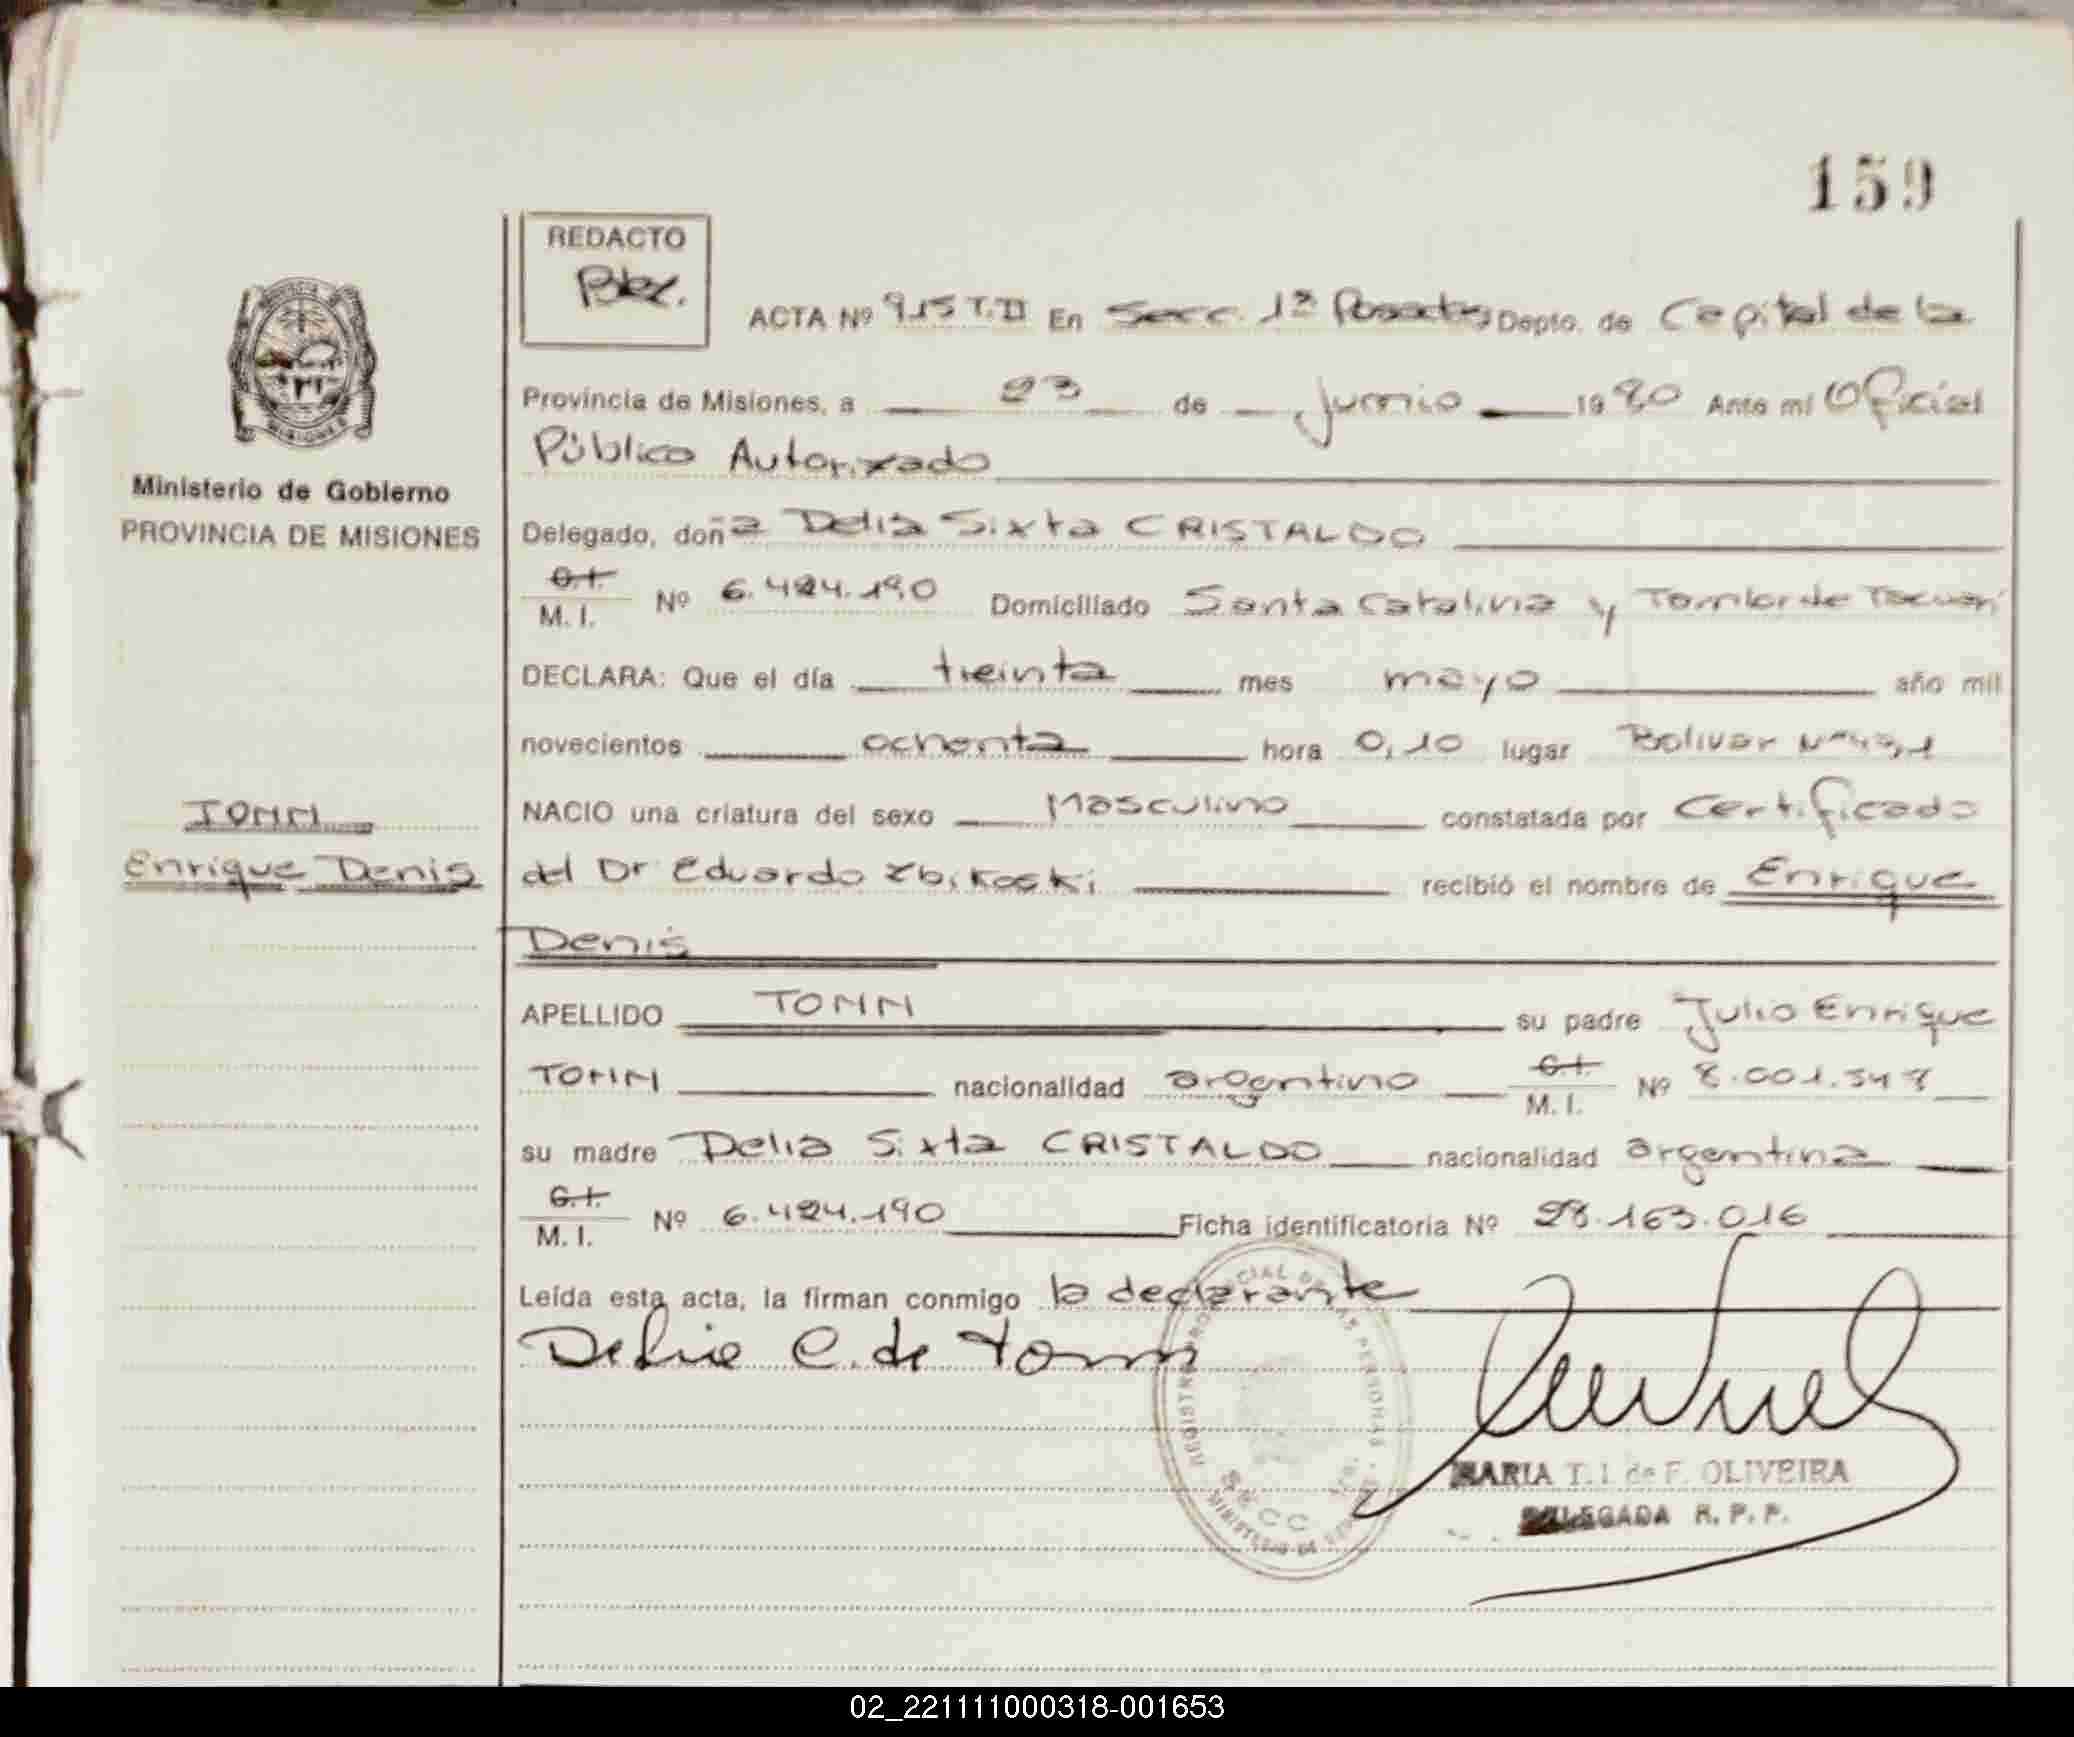 159
REDACTO
ACTA Nº 915 T.II En Secc. 1ª Posadas Depto. de Capital de la
Provincia de Misiones, a 23 de Junio 1980 Ante mí Oficial
Público Autorizado
Ministerio de Gobierno
PROVINCIA DE MISIONES
Delegado, doña Delia Sixta CRISTALDO
C.I. M. I. Nº 6.424.190 Domiciliado Santa Catalina y Tambor de Tacuarí
DECLARA: Que el día treinta mes mayo año mil
novecientos ochenta hora 0,10 lugar Bolivar Nº
TOMM
NACIO una criatura del sexo Masculino constatada por Certificado
Enrique Denis
del Dr Eduardo Zbikoski recibió el nombre de Enrique
Denis
APELLIDO TOMM su padre Julio Enrique
TOMM nacionalidad argentino C.I. M. I. Nº 8.001.548
su madre Delia Sixta CRISTALDO nacionalidad argentina
C.I. M. I. Nº 6.424.190 Ficha identificatoria Nº 28.163.016
Leída esta acta, la firman conmigo la declarante
Delia C. de Tomm
MARIA T. I. de F. OLIVEIRA
DELEGADA R. P. P.
02_221111000318-001653